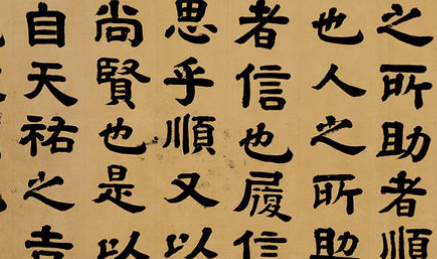 之所助者順
也人之所助
者信也履信
思乎順又以
尚賢也是以
自天祐之吉